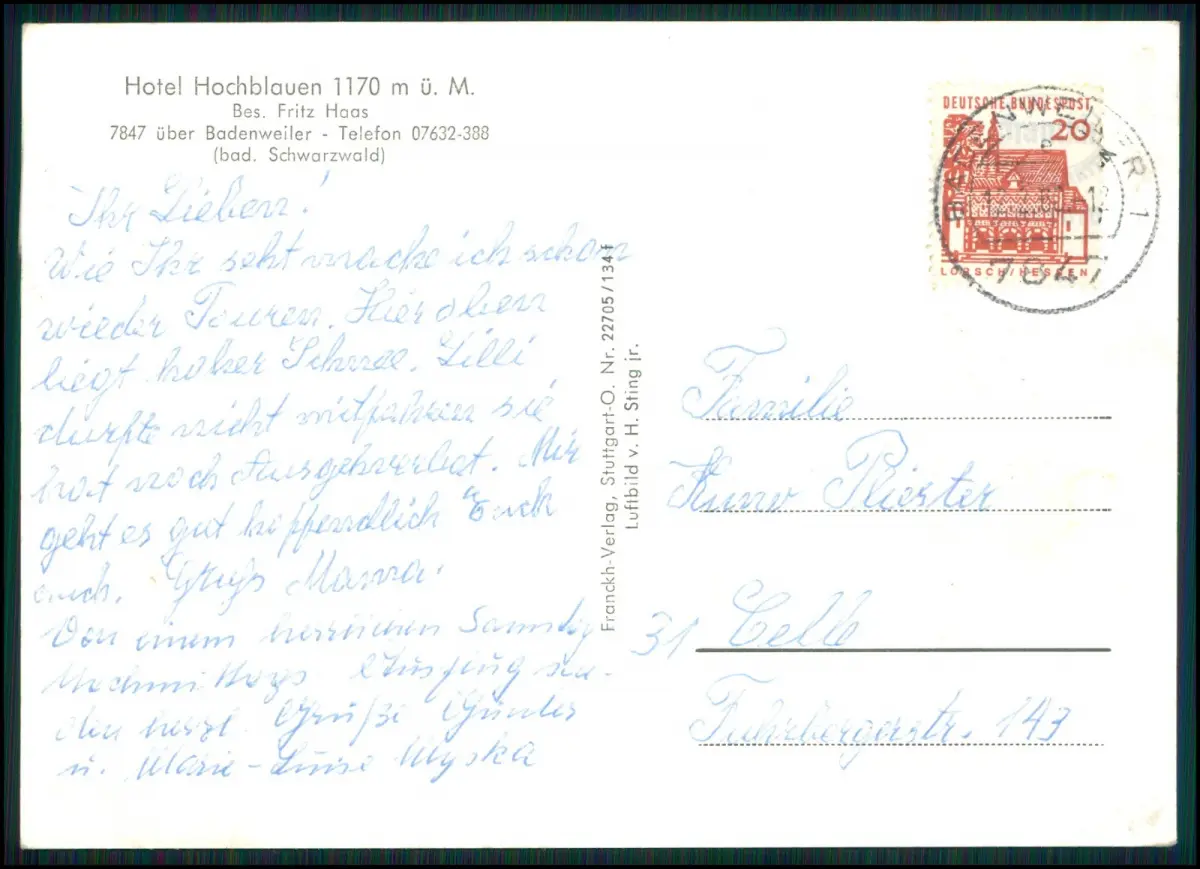 Hotel Hochblauen 1170 m ü. M.
Bes. Fritz Haas
7847 über Badenweiler - Telefon 07632-388
(bad. Schwarzwald)
Ihr Lieben!
Wie Ihr seht mache ich schon
wieder Touren. Hier oben
liegt hoher Schnee. Lilli
durfte nicht mitfahren sie
hat noch Ausgehverbot. Mir
geht es gut hoffendlich Euch
auch. Gruß Mama.
Von einem herrlichen Samstag
Nachmittags Ausflug sen-
den herzl. Grüße Günter
u. Marie-Luise Myska
Franckh-Verlag, Stuttgart-O. Nr. 22705/134 f
Luftbild v. H. Sting jr.
DEUTSCHE BUNDESPOST
20
LORSCH/HESSEN
BADENWEILER 1
7847
Familie
Kuno Riester
31 Celle
Fuhrbergerstr. 143